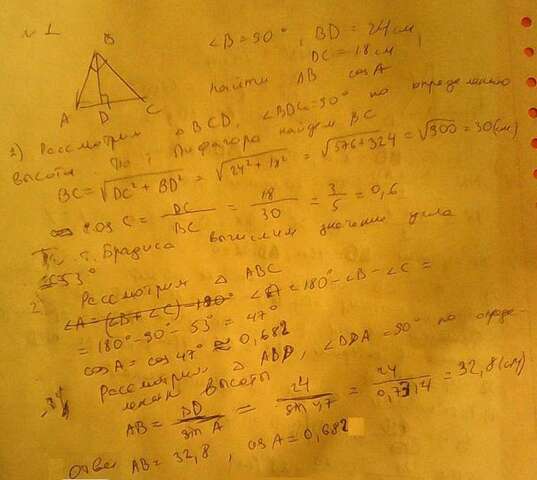 № 1
B
A D C
∠B = 90°, BD = 24 см
DC = 18 см
Найти AB cos A
1) Рассмотрим △ BCD, ∠BDC = 90° по определению
высоты. По т. Пифагора найдем BC
BC = √DC² + BD² = √24² + 18² = √576 + 324 = √900 = 30 (см)
cos C = DC/BC = 18/30 = 3/5 = 0,6
т. Брадиса вычислим значение угла
53°
2. Рассмотрим △ ABC
∠A = (∠B + ∠C) - 180° ∠A = 180° - ∠B - ∠C =
= 180° - 90° - 53° = 47°
cos A = cos 47° ≈ 0,682
Рассмотрим △ ABD, ∠BDA = 90° по опреде-
лению высоты
AB = BD/sin A = 24/sin 47 = 24/0,7314 = 32,8 (см)
Ответ AB = 32,8, cos A = 0,682